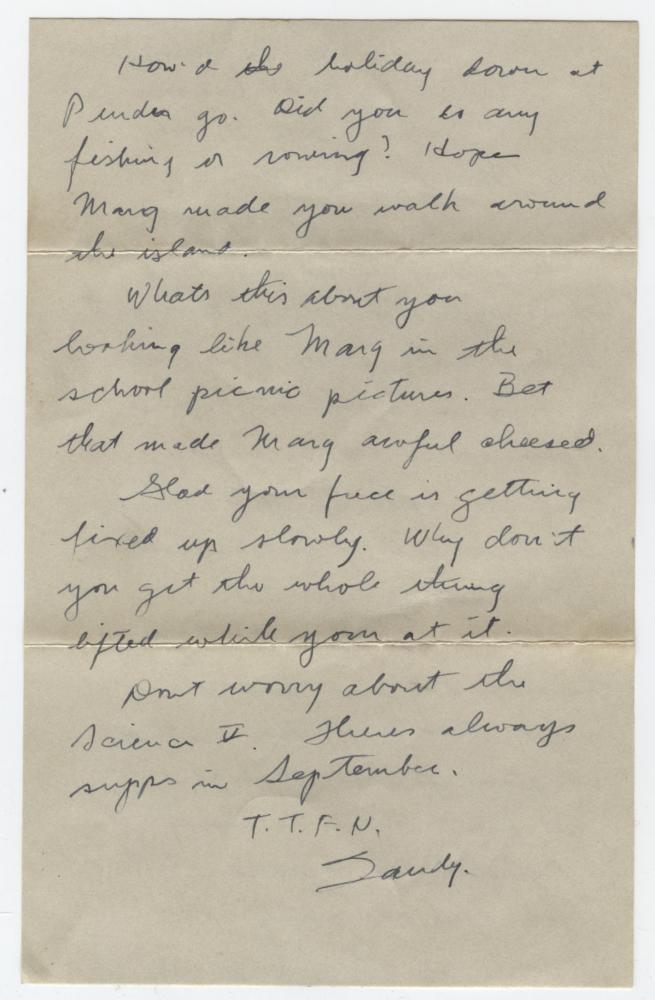 How'd the holiday down at
Pender go. Did you do any
fishing or rowing? Hope
Marg made you walk around
the island.
Whats this about you
looking like Marg in the
school picnic pictures. Bet
that made Marg awful cheesed.
Glad your face is getting
fixed up slowly. Why don't
you get the whole thing
lifted while your at it.
Dont worry about the
Science V. Theres always
supps in September.
T.T.F.N.
Sandy.